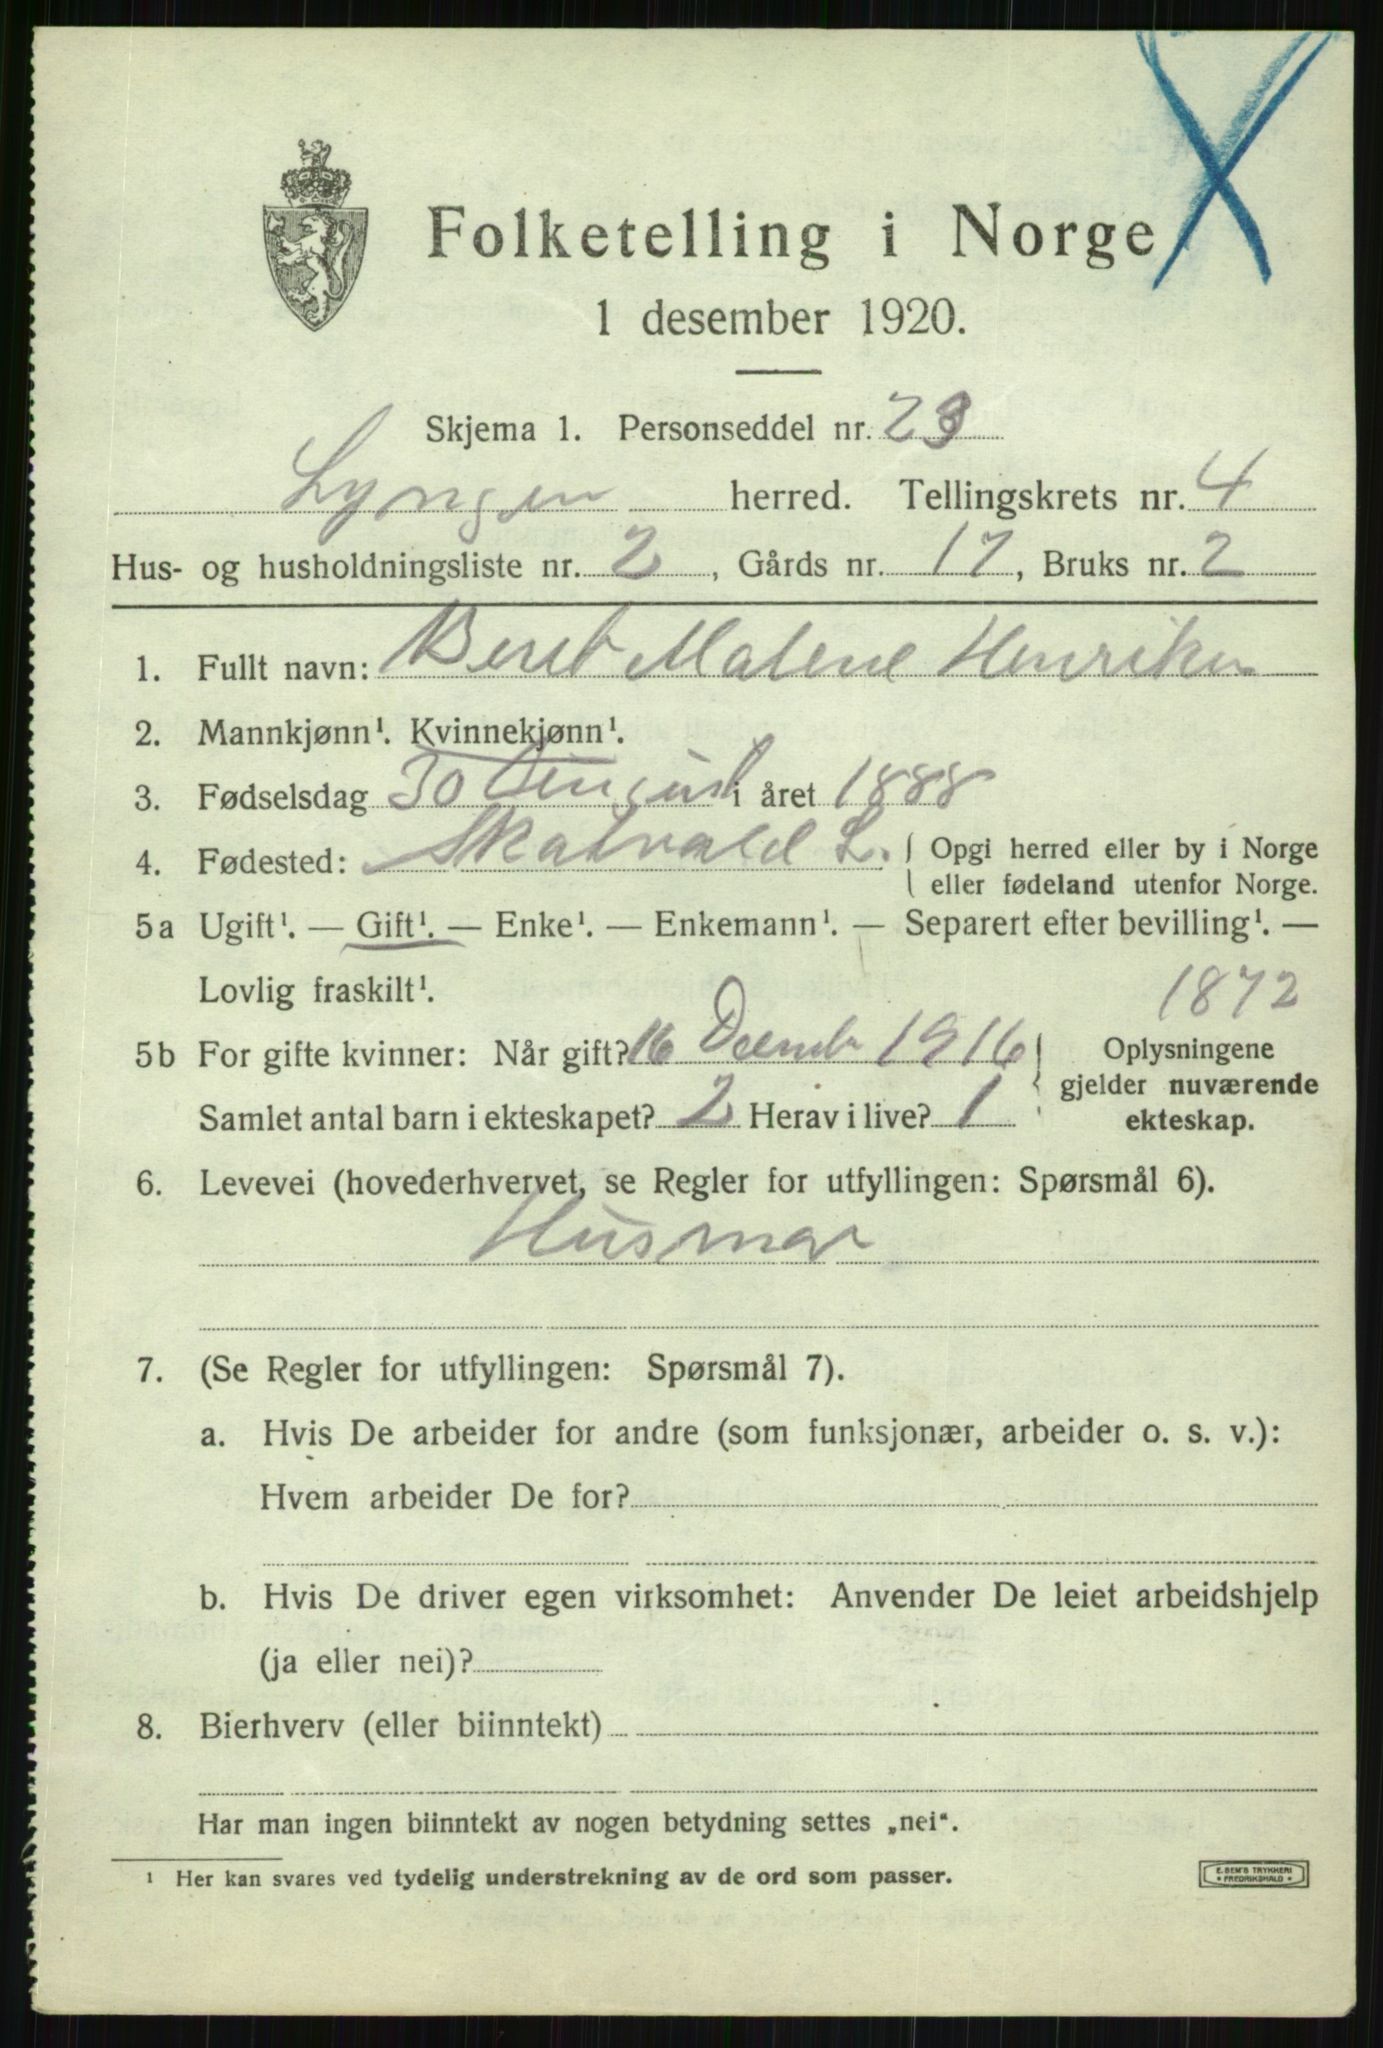 Folketelling i Norge
1 desember 1920.
Skjema 1. Personseddel nr. 23
Lyngen herred. Tellingskrets nr. 4
Hus- og husholdningsliste nr. 2, Gårds nr. 17, Bruks nr. 2
1. Fullt navn: Beret Malene Henriksen
2. Mannkjønn¹. Kvinnekjønn¹.
3. Fødselsdag 30 August i året 1888
4. Fødested: Skatvald L. Opgi herred eller by i Norge
eller fødeland utenfor Norge.
5a Ugift¹. — Gift¹. — Enke¹. — Enkemann¹. — Separert efter bevilling¹. —
Lovlig fraskilt¹. 1872
5b For gifte kvinner: Når gift? 16 Decembr 1916 Oplysningene
gjelder nuværende
Samlet antal barn i ekteskapet? 2 Herav i live? 1 ekteskap.
6. Levevei (hovederhvervet, se Regler for utfyllingen: Spørsmål 6).
Husmor
7. (Se Regler for utfyllingen: Spørsmål 7).
a. Hvis De arbeider for andre (som funksjonær, arbeider o. s. v.):
Hvem arbeider De for?
b. Hvis De driver egen virksomhet: Anvender De leiet arbeidshjelp
(ja eller nei)?
8. Bierhverv (eller biinntekt)
Har man ingen biinntekt av nogen betydning settes „nei“.
¹ Her kan svares ved tydelig understrekning av de ord som passer.
E. SEM'S TRYKKERI
• FREDRIKSHALD •